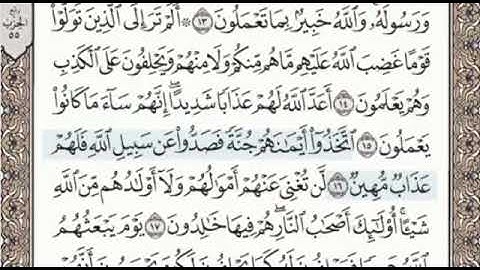 وَرَسُولَهُۥ وَٱللَّهُ خَبِيرُۢ بِمَا تَعْمَلُونَ ١٣ ۞ أَلَمْ تَرَ إِلَى ٱلَّذِينَ تَوَلَّوْا۟
قَوْمًا غَضِبَ ٱللَّهُ عَلَيْهِم مَّا هُم مِّنكُمْ وَلَا مِنْهُمْ وَيَحْلِفُونَ عَلَى ٱلْكَذِبِ
وَهُمْ يَعْلَمُونَ ١٤ أَعَدَّ ٱللَّهُ لَهُمْ عَذَابًا شَدِيدًا ۖ إِنَّهُمْ سَآءَ مَا كَانُوا۟
يَعْمَلُونَ ١٥ ٱتَّخَذُوٓا۟ أَيْمَـٰنَهُمْ جُنَّةً فَصَدُّوا۟ عَن سَبِيلِ ٱللَّهِ فَلَهُمْ
عَذَابٌ مُّهِينٌ ١٦ لَّن تُغْنِىَ عَنْهُمْ أَمْوَٰلُهُمْ وَلَآ أَوْلَـٰدُهُم مِّنَ ٱللَّهِ
شَيْـًٔا ۚ أُو۟لَـٰٓئِكَ أَصْحَـٰبُ ٱلنَّارِ ۖ هُمْ فِيهَا خَـٰلِدُونَ ١٧ يَوْمَ يَبْعَثُهُمُ
الحزب
٥٥